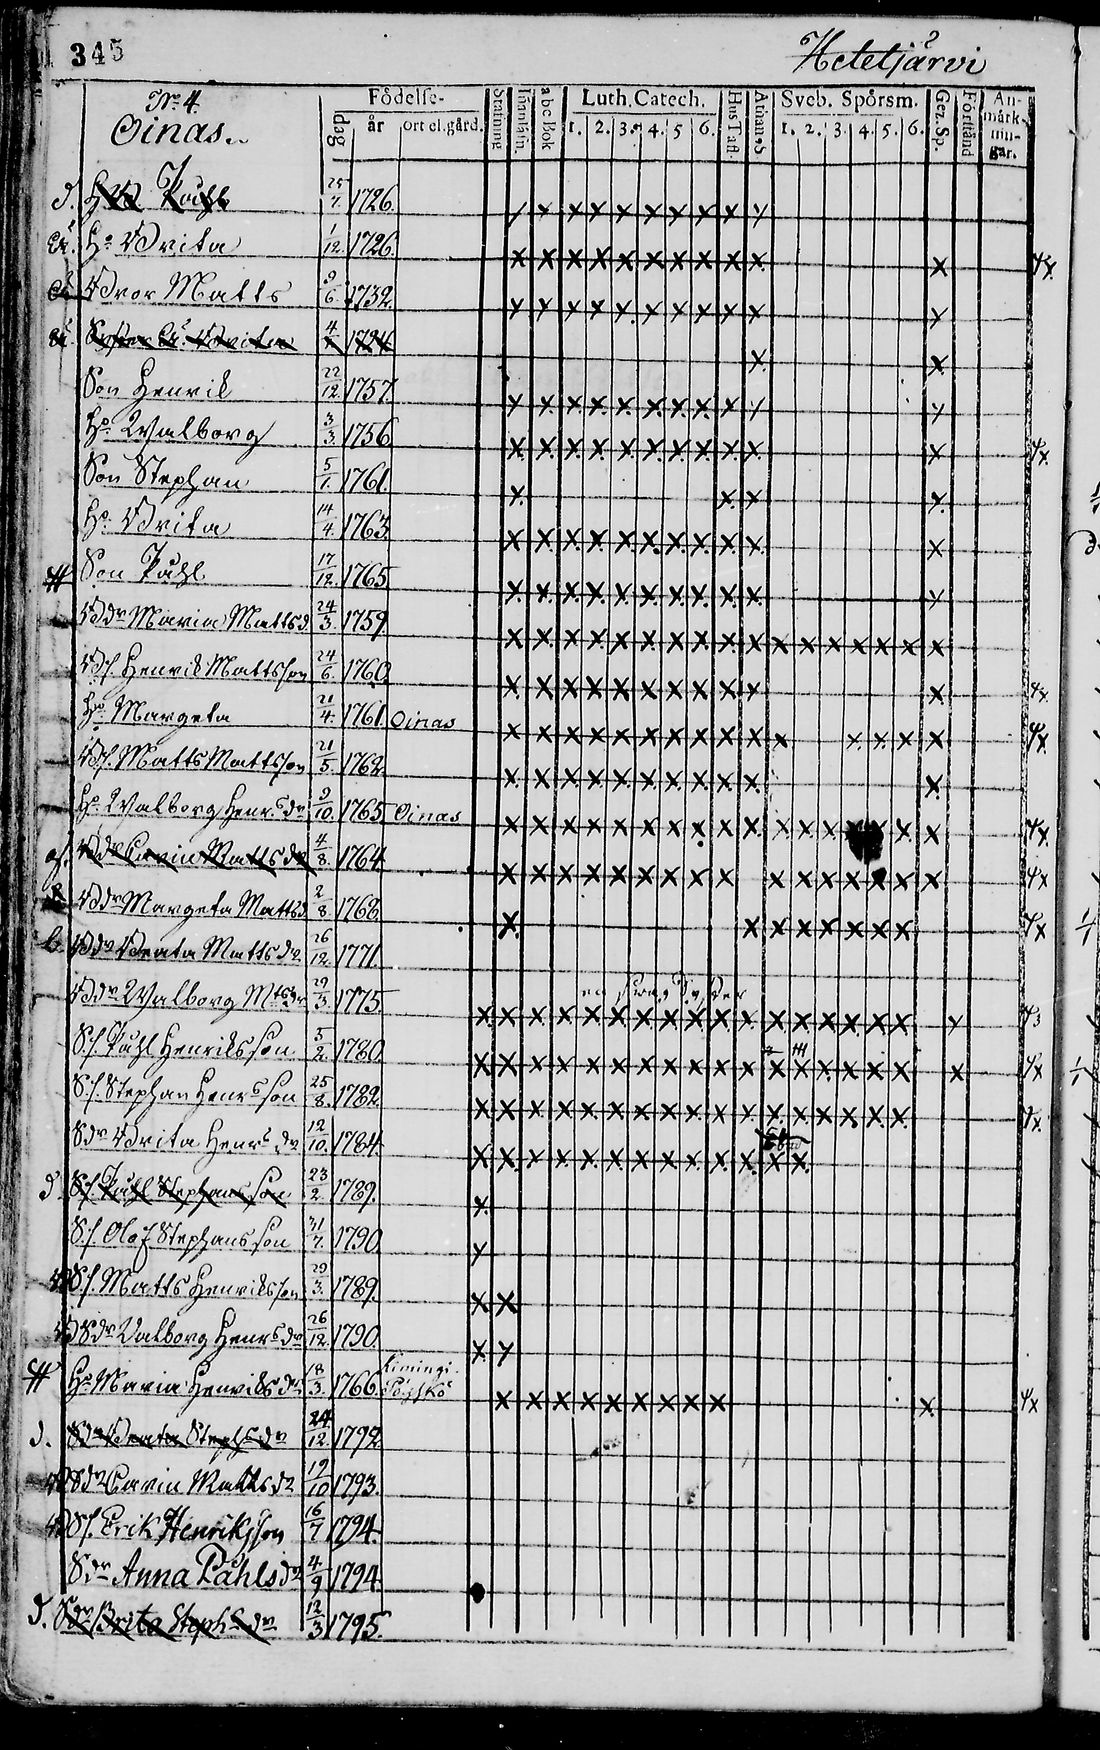 345
Hetetjärvi
No. 4.
Oinas.
Födelse-
dag
år
ort el. gård.
Stafning
Innanläsn.
abc Bok
Luth. Catech.
1. 2. 3. 4. 5 6.
Hus Tafl.
Athan.
Sveb. Spörsm.
1. 2. 3. 4. 5. 6.
Gez. Sp.
Förstånd
An-
märk-
nin-
gar.
d. Påhl 25/7. 1726.
Ha. Brita 1/12. 1726. 4x.
Bror Matts 9/6. 1732.
Brita 4
Son Henrik 22/12 1757.
Ha. Walborg 3/3. 1756 4x.
Son Stephan 5/1. 1761.
Ha. Brita 14/4. 1763.
Son Påhl 17/12. 1765
Bdr Maria Mattsd. 24/3. 1759.
Bs. Henrik Mattsson 24/6. 1760. 4x
Ha. Margeta 21/4. 1761. Oinas 4x.
Bs. Matts Mattsson 21/5. 1762.
Ha. Walborg Henrs dr 9/10. 1765 Oinas 4x.
Bdr Carin Matts dr 4/8. 1764 4x
Bdr Margeta Matts d 2/8 1768 4x
b Bdr Beata Matts dr 26/12. 1771
Bdr Walborg Mts dr 29/3 1775. 43
S.s. Påhl Henriksson 5/2 1780. 4x
S.s. Stephan Henrs son 25/8. 1782. 4x.
Sdr Brita Henrs dr 12/10. 1784.
d. S.s. Påhl Stephansson 23/2. 1789.
S.s. Olof Stephansson 31/7. 1790.
S.s. Matts Henriksson 29/3. 1789.
Sdr Valborg Henrs dr 26/12. 1790.
Kimingi
Ha. Maria Henriks dr 18/3. 1766. 4x
d. Sdr Beata Stephs dr 24/12. 1792.
Sdr Carin Matts dr 19/10 1793.
Ss. Erik Henriksson 16/7 1794.
Sdr Anna Påhls dr 4/9 1794.
d. Sdr Brita Stephs dr 12/3 1795.